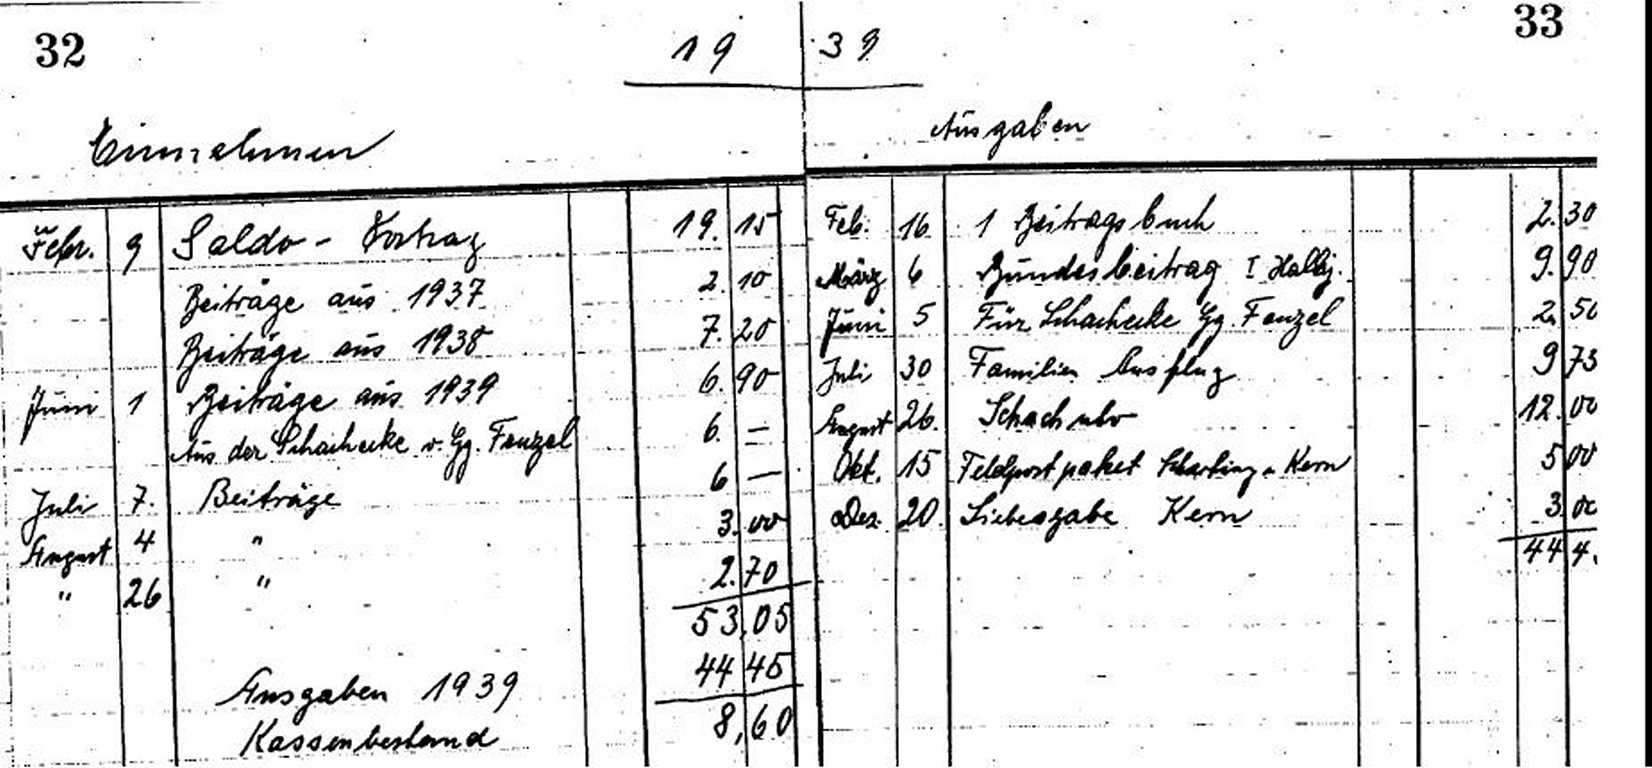 32
19 39
33
Einnahmen
Ausgaben
Febr. 9 Saldo - Vortrag 19. 15
Beiträge aus 1937 2. 10
Beiträge aus 1938 7. 20
Juni 1 Beiträge aus 1939 6. 90
Aus der Schachecke v. Gg. Fenzel 6. —
Juli 7. Beiträge 6 —
August 4 " 3.00
" 26 " 2.70
53,05
Ausgaben 1939 44 45
Kassenbestand 8,60
Feb. 16 1 Beitragsbuch 2. 30
März 6 Bundesbeitrag I Halbj. 9. 90
Juni 5 Für Schachecke Gg Fenzel 2. 50
Juli 30 Familien Ausflug 9 75
August 26. Schachuhr 12. 00
Okt. 15 Feldpostpaket Kern 5 00
Dez. 20 Liebesgabe Kern 3. 00
44 4.